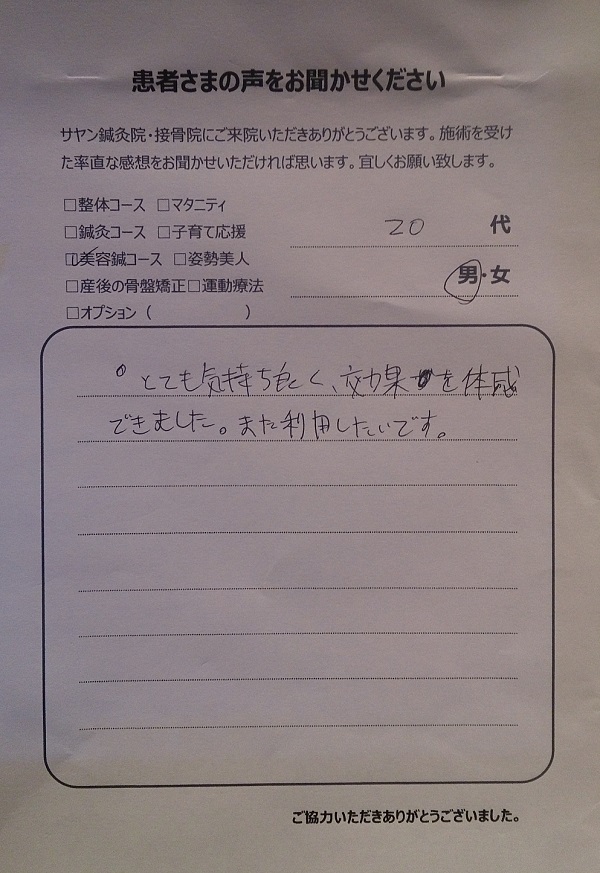 患者さまの声をお聞かせください
サヤン鍼灸院・接骨院にご来院いただきありがとうございます。施術を受け
た率直な感想をお聞かせいただければ思います。宜しくお願い致します。
□整体コース □マタニティ
□鍼灸コース □子育て応援
□美容鍼コース □姿勢美人
□産後の骨盤矯正□運動療法
□オプション（ ）
20 代
男・女
。とても気持ち良く、効果を体感
できました。また利用したいです。
ご協力いただきありがとうございました。